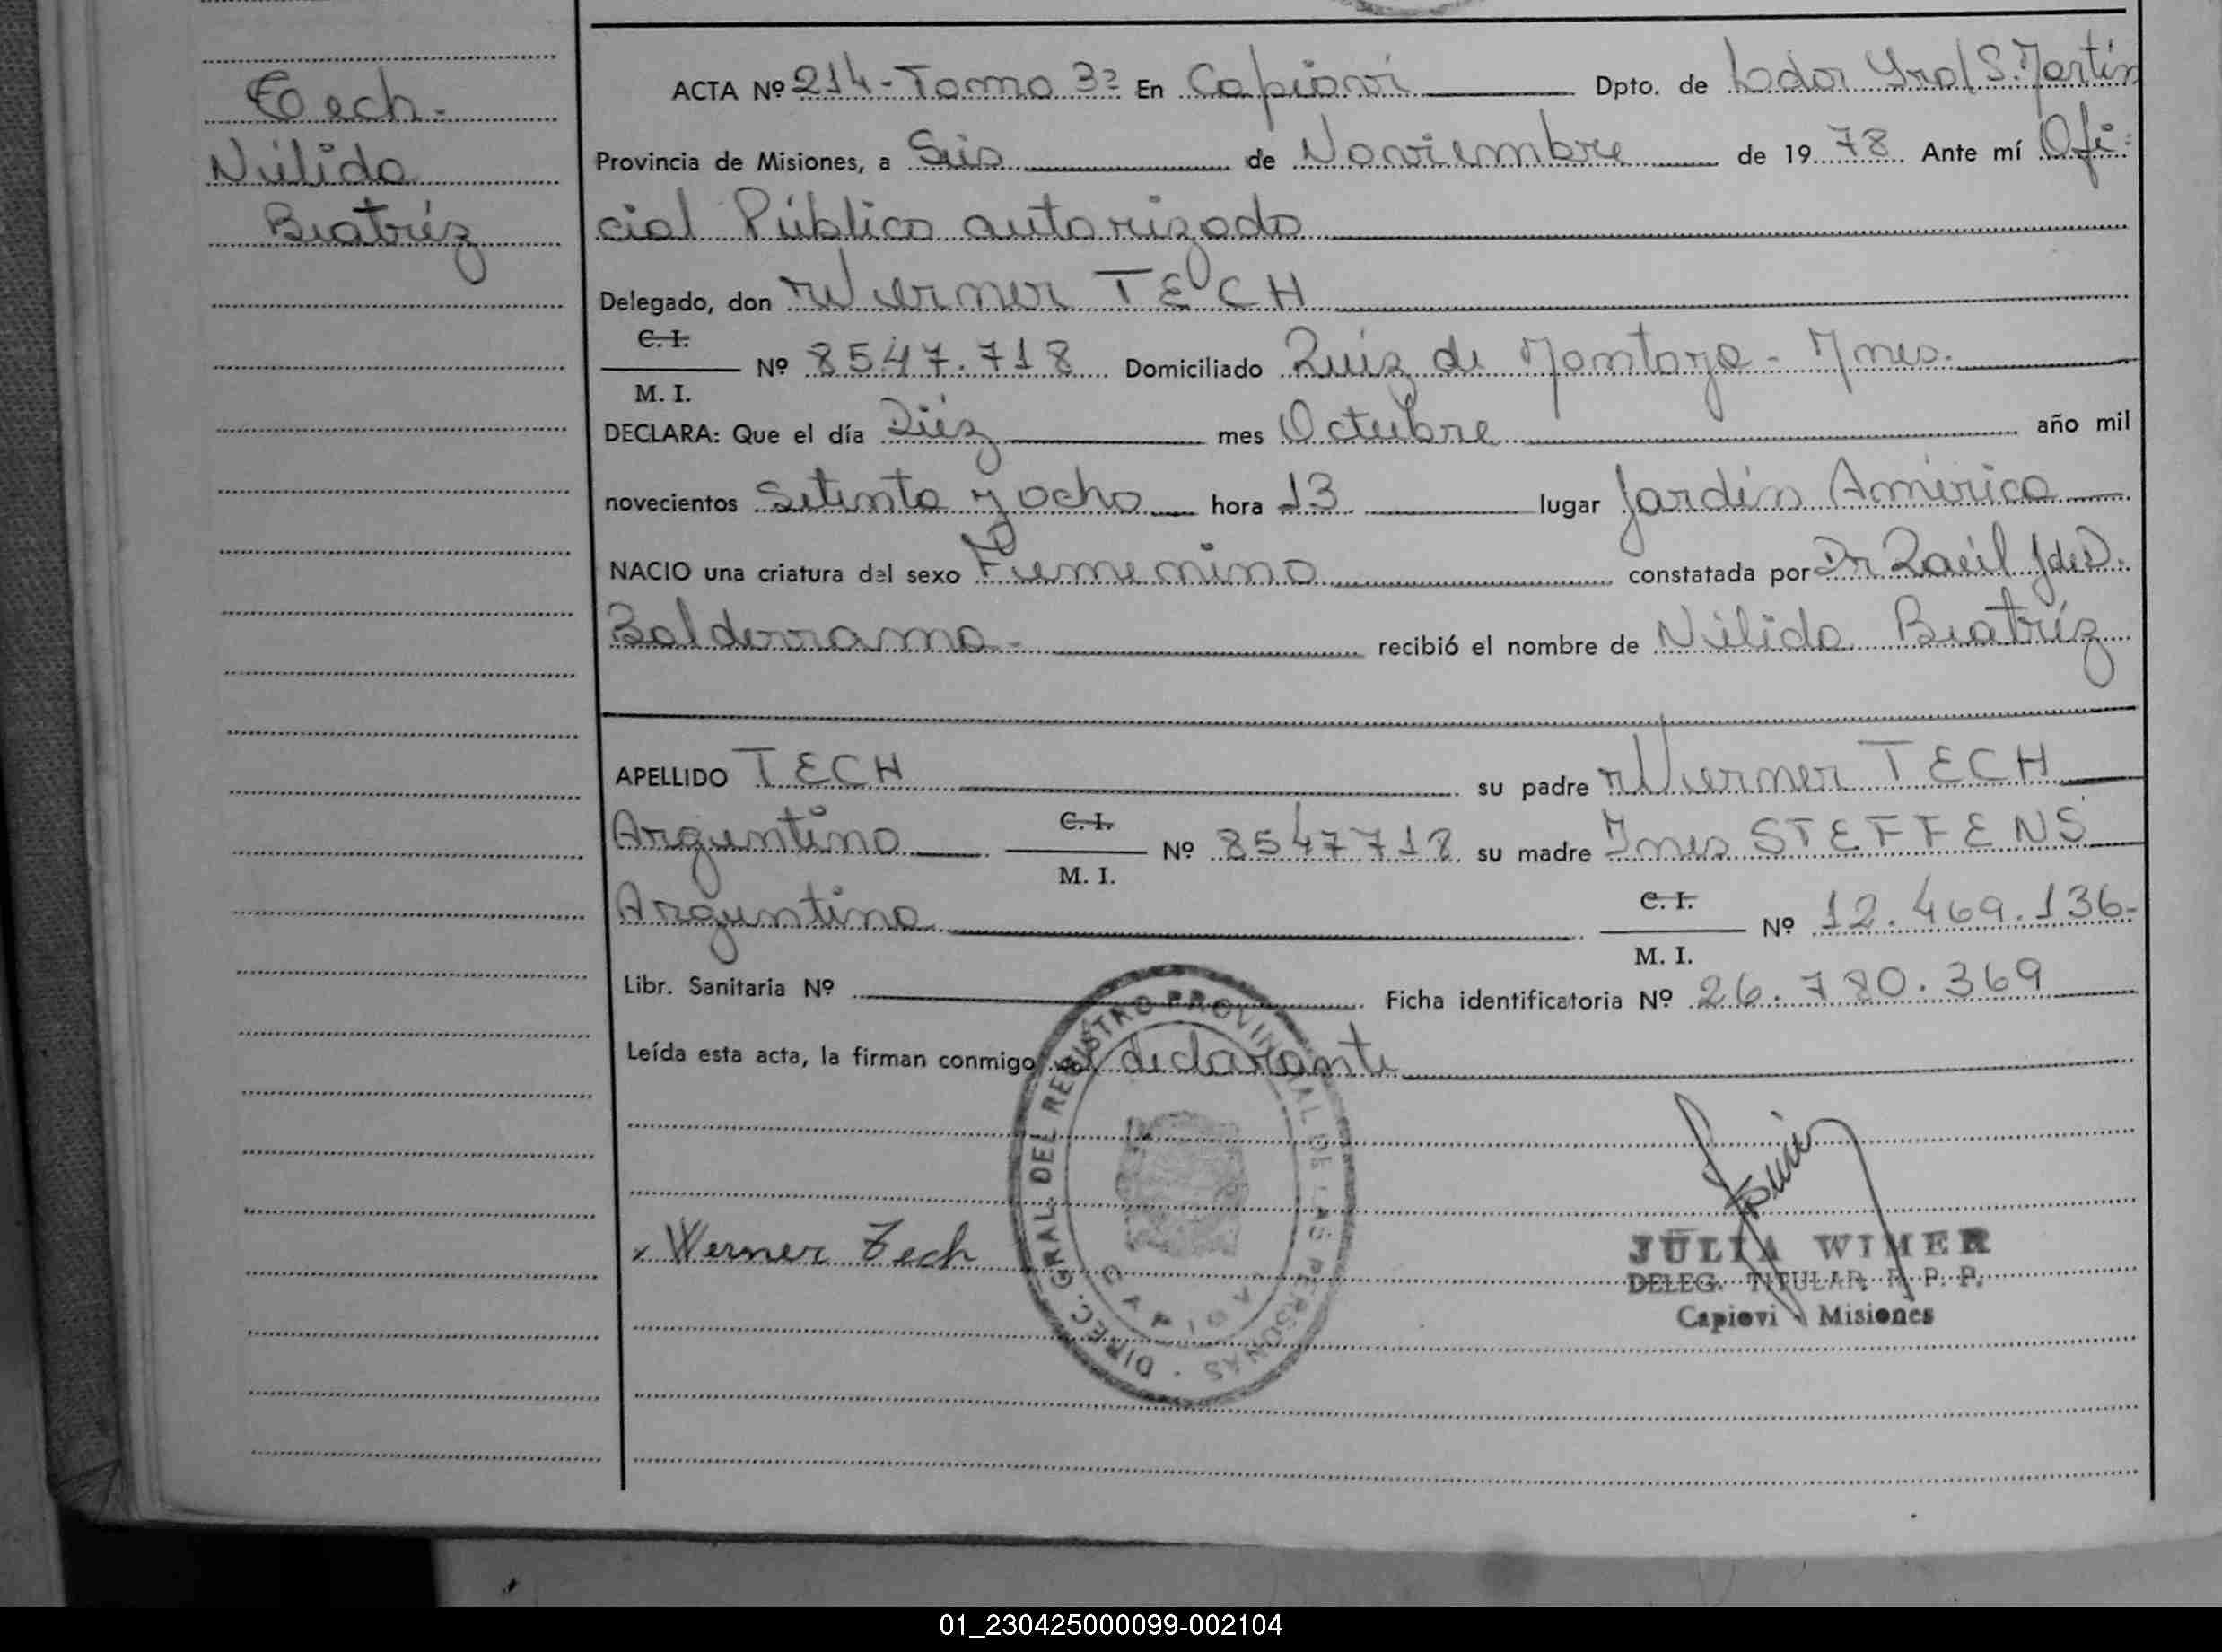 Tech.
Nélida
Beatréz
ACTA Nº 214 - Tomo 3º En Capioví Dpto. de Ldor Gral S. Martín
Provincia de Misiones, a Seis de Noviembre de 1978 Ante mí Ofi-
cial Público autorizado
Delegado, don Werner TECH
C. I.
M. I. Nº 8547.718 Domiciliado Ruíz de Montoya - Mnes.
DECLARA: Que el día Diéz mes Octubre año mil
novecientos Setenta y ocho hora 13 lugar Jardín América
NACIO una criatura del sexo Femenino constatada por Dr Raúl J de D.
Balderrama - recibió el nombre de Nélida Beatréz
APELLIDO TECH su padre Werner TECH
Argentino C. I. M. I. Nº 8547718 su madre Ines STEFFENS
Argentina C. I. M. I. Nº 12.469.136-
Libr. Sanitaria Nº Ficha identificatoria Nº 26.780.369
Leída esta acta, la firman conmigo el declarante
x Werner Tech
DIREC. GRAL. DEL REGISTRO PROVINCIAL DE LAS PERSONAS
CAPIOVI
JULIA WIMER
DELEG. TITULAR R. P. P.
Capioví Misiones
01_230425000099-002104